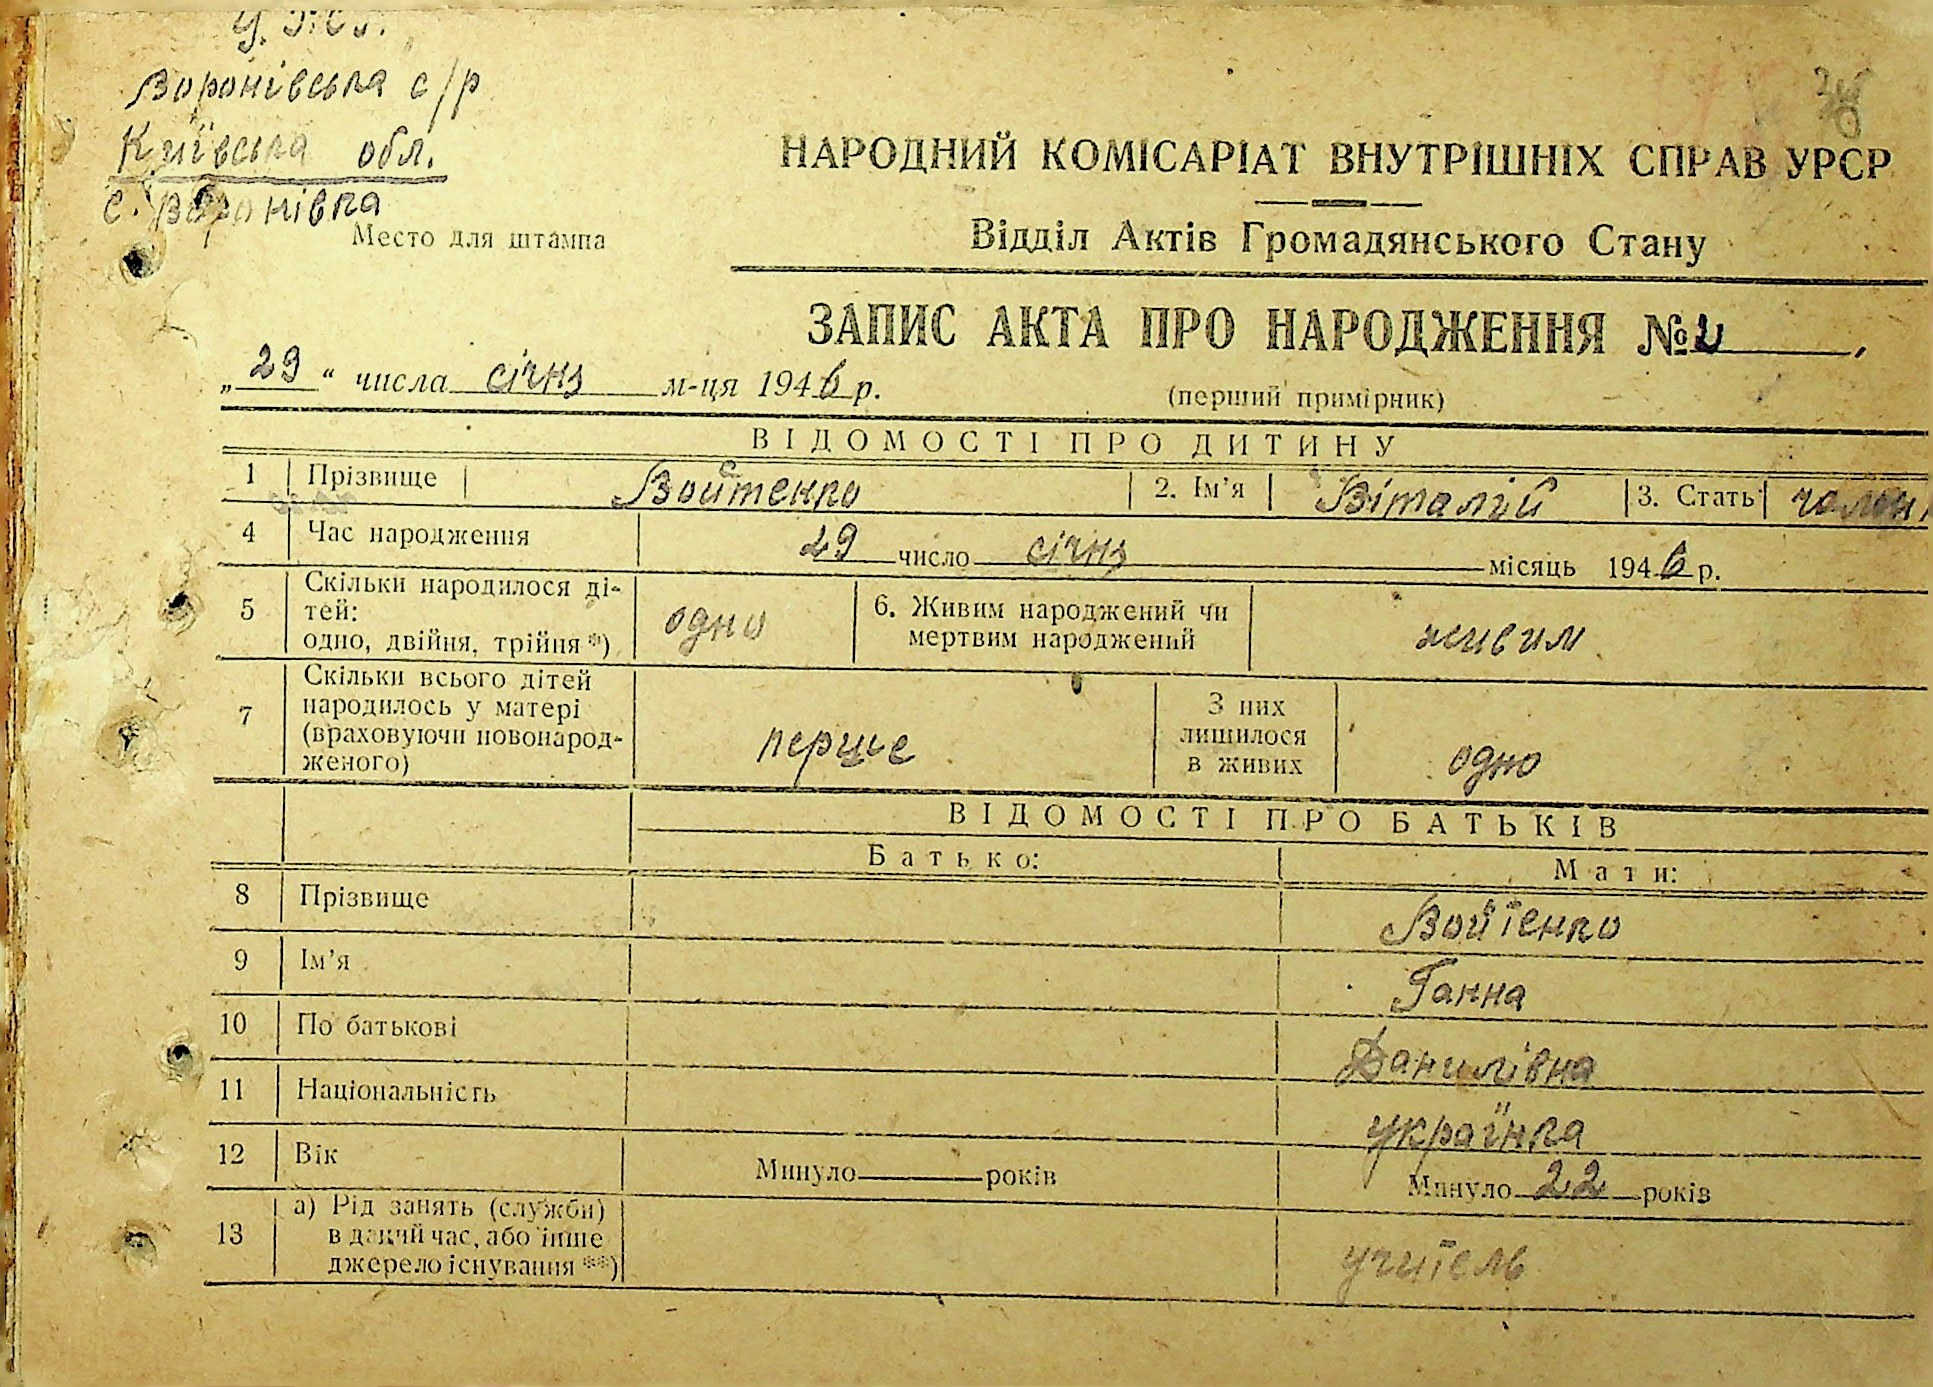 Воронівська с/р
Київська обл.
с. Воронівка
Место для штампа
НАРОДНИЙ КОМІСАРІАТ ВНУТРІШНІХ СПРАВ УРСР
Відділ Актів Громадянського Стану
ЗАПИС АКТА ПРО НАРОДЖЕННЯ № 2
„29“ числа січня м-ця 1946 р.
(перший примірник)
ВІДОМОСТІ ПРО ДИТИНУ
1 Прізвище Войтенко 2. Ім'я Віталій 3. Стать
4 Час народження 29 число січня місяць 1946 р.
5 Скільки народилося ді-
тей:
одно, двійня, трійня *) одно
6. Живим народжений чи
мертвим народжений живим
7 Скільки всього дітей
народилось у матері
(враховуючи новонарод-
женого) перше
З них
лишилося
в живих одно
ВІДОМОСТІ ПРО БАТЬКІВ
Батько: Мати:
8 Прізвище Войтенко
9 Ім'я Ганна
10 По батькові Данилівна
11 Національність українка
12 Вік Минуло років Минуло 22 років
13 а) Рід занять (служби)
в даний час, або інше
джерело існування **) учитель